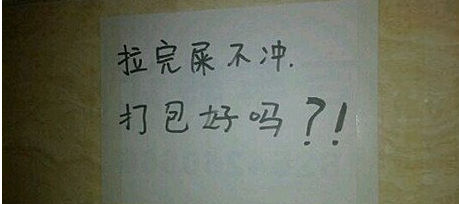 拉完屎不冲.
打包好吗?!